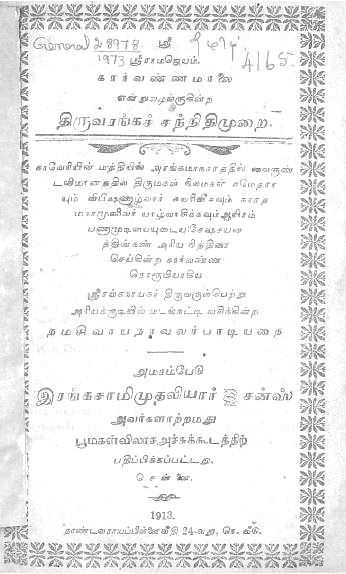 ஸ்ரீ
4165
1973 ஸ்ரீராமஜெயம்.
கார்வண்ணமாலை
என்று வழங்குகின்ற
திருவரங்கச் சந்நிதிமுறை.
காவேரியின் மத்தியில் அரங்கமாகாரத்தில்
டவிமானத்தில் திருமகள் நிலமகள் சமேதரா
யும் விபீஷணாழ்வார் காவிரியும் நாரத
மாமுனிவர் யாழ்வாசிக்கவும் ஆயிரம்
பணாமுடியையுடைய சேஷசயன
த்தின்கண் அரிய நித்திரை
செய்கின்ற கார்வண்ண
சொரூபியாகிய
ஸ்ரீரங்கநாயகர் திருவருள்பெற்று
அரியக்குடியில் மடங்கட்டி வசிக்கின்ற
நமசிவாயநாவலர்பாடியதை
அமரம்பேடு
இரங்கசாமிமுதலியார் & சன்ஸ்
அவர்களாற்றமது
பூமகள்விலாசஅச்சுக்கூடத்திற்
பதிப்பிக்கப்பட்டது.
சென்னை.
1913.
தாண்டவராயப்பிள்ளைவீதி 24-வது, செ. வீடு.